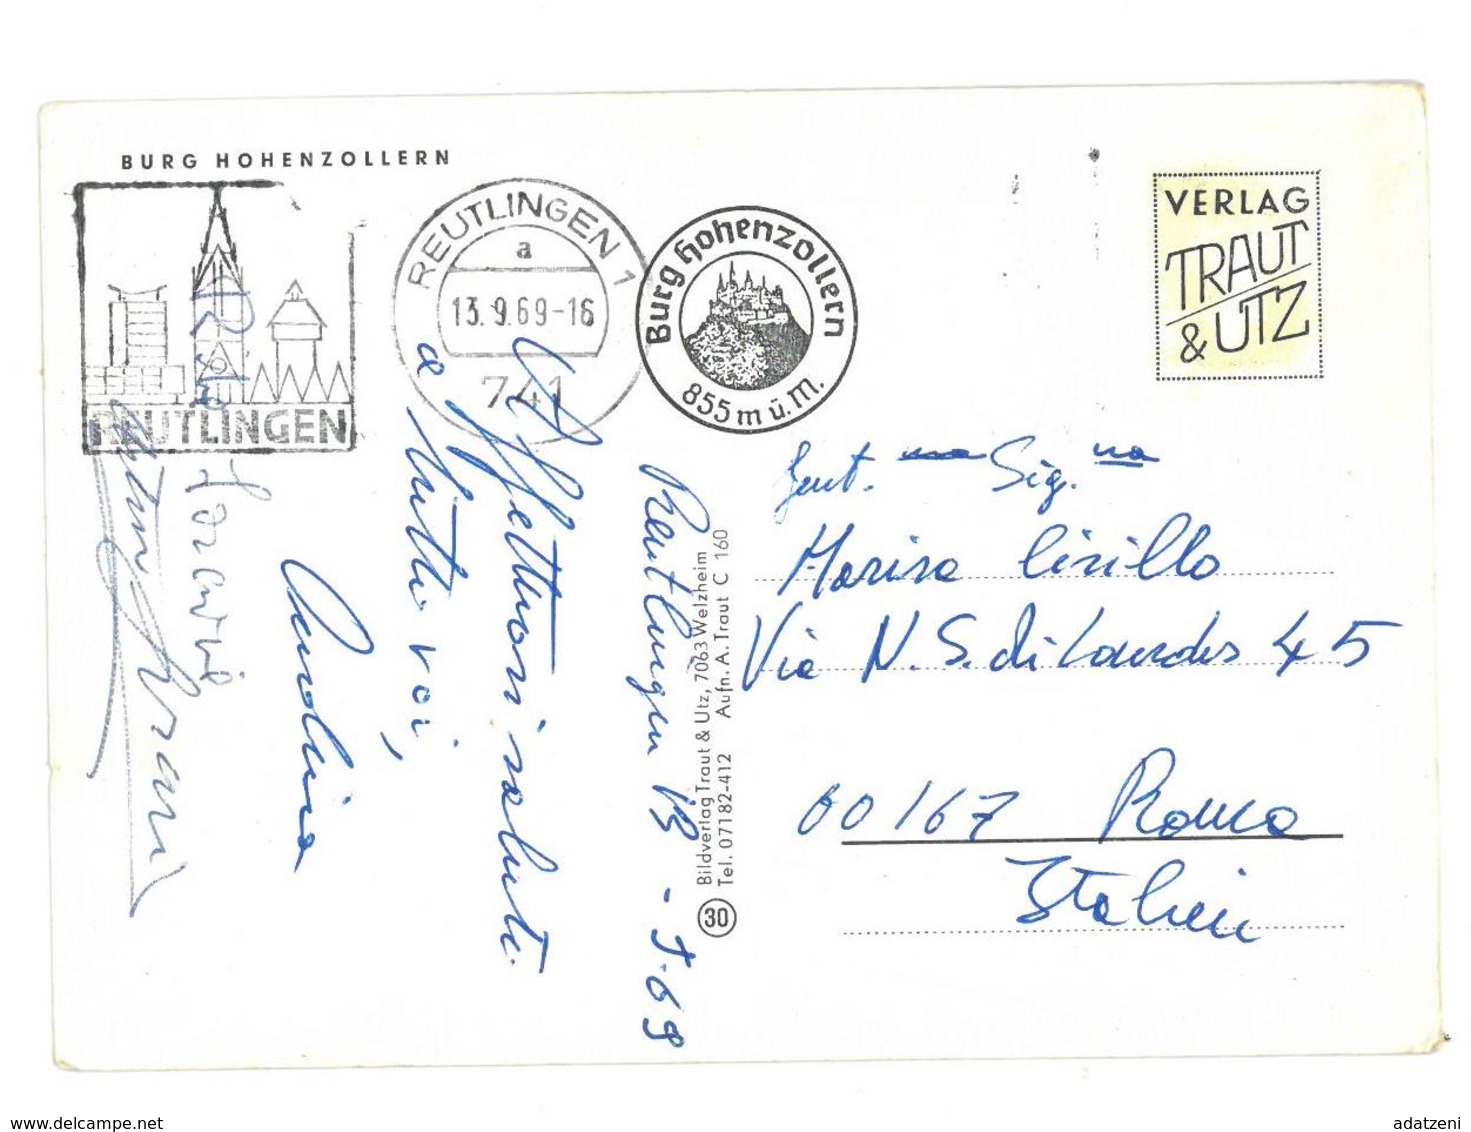 BURG HOHENZOLLERN
REUTLINGEN
REUTLINGEN 1
a
13.9.69-16
741
Burg Hohenzollern
855 m ü. M.
VERLAG
TRAUT
& UTZ
Reutlingen 13-9-69
Affettuosi saluti
a tutti voi,
Carolina
Bildverlag Traut & Utz, 7063 Welzheim
Tel. 07182-412 Aufn. A. Traut C 160
30
Gent. ma Sig. na
Marisa Cirillo
Via N. S. di Lourdes 45
00167 Roma
Italien
www.delcampe.net
adatzeni